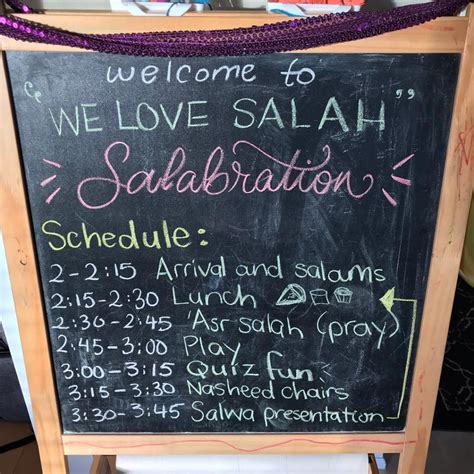 welcome to
"WE LOVE SALAH"
Salabration
Schedule:
2-2:15 Arrival and salams
2:15-2:30 Lunch
2:30-2:45 'Asr salah (pray)
2:45-3:00 Play
3:00-3:15 Quiz fun
3:15-3:30 Nasheed chairs
3:30-3:45 Salwa presentation